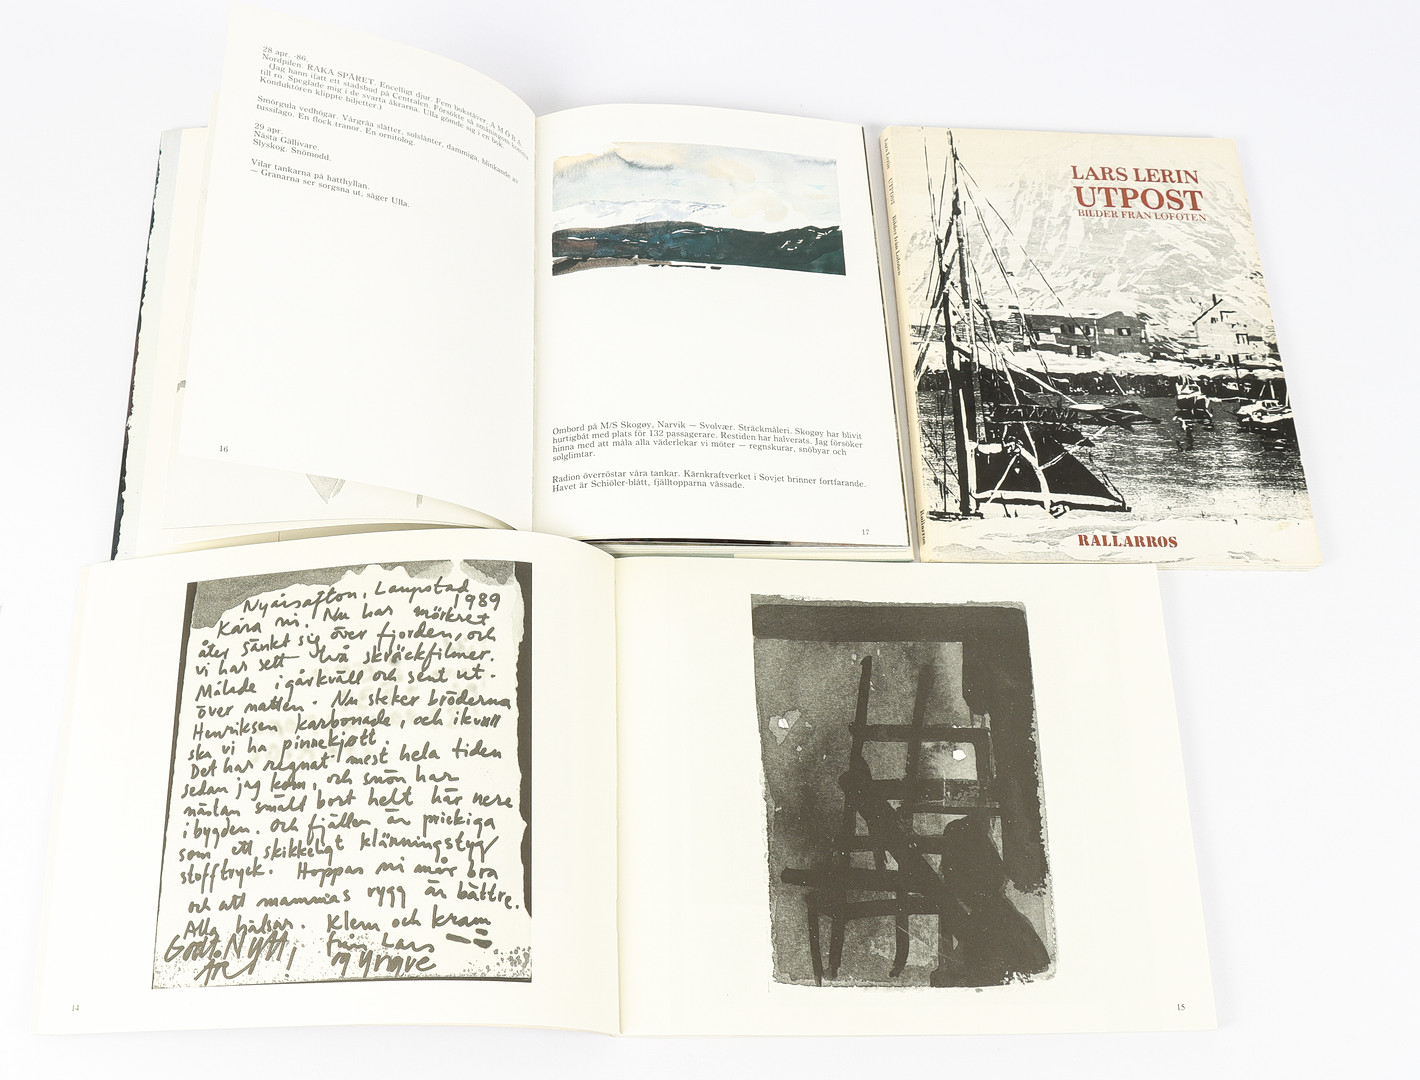 28 apr. -86.
Nordpilen. RAKA SPÅRET. Encelligt djur. Fem bokstäver. A M Ö B A.
(Jag hann ifatt ett stadsbud på Centralen. Försökte så småningom komma
till ro. Speglade mig i de svarta åkrarna. Ulla gömde sig i en bok.
Konduktören klippte biljetter.)
Smörgula vedhögar. Vårgråa slätter, solslänter, dammiga, blinkande av
tussilago. En flock tranor. En ornitolog.
29 apr.
Nästa Gällivare.
Slyskog. Snömodd.
Vilar tankarna på hatthyllan.
— Granarna ser sorgsna ut, säger Ulla.
16
Ombord på M/S Skogøy, Narvik — Svolvær. Sträckmåleri. Skogøy har blivit
hurtigbåt med plats för 132 passagerare. Restiden har halverats. Jag försöker
hinna med att måla alla väderlekar vi möter — regnskurar, snöbyar och
solglimtar.
Radion överröstar våra tankar. Kärnkraftverket i Sovjet brinner fortfarande.
Havet är Schiöler-blått, fjälltopparna vässade.
17
Lars Lerin UTPOST Bilder från Lofoten Rallarros
LARS LERIN
UTPOST
BILDER FRÅN LOFOTEN
RALLARROS
Nyårsafton, Laupstad
1989
Kära ni. Nu har mörkret
åter sänkt sig över fjorden, och
vi har sett två skräckfilmer.
Målade igårkväll och sent ut-
över natten. Nu steker bröderna
Henriksen karbonade, och ikväll
ska vi ha pinnekjøtt.
Det har regnat mest hela tiden
sedan jag kom, och snön har
nästan smält bort helt här nere
i bygden. Och fjällen är prickiga
som ett skikkeligt klänningstyg/
stofftryck. Hoppas ni mår bra
och att mammas rygg är bättre.
Alla hälsar. Klem och kram
Godt Nytt, från Lars
År og Yngve
14
15